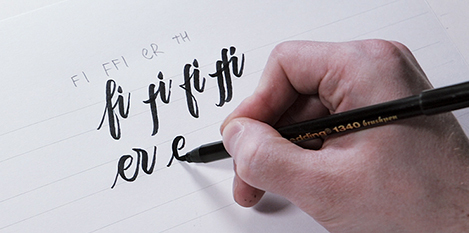 FI FFI ER TH
fi fi fi ffi
er e
edding® 1340 brushpen